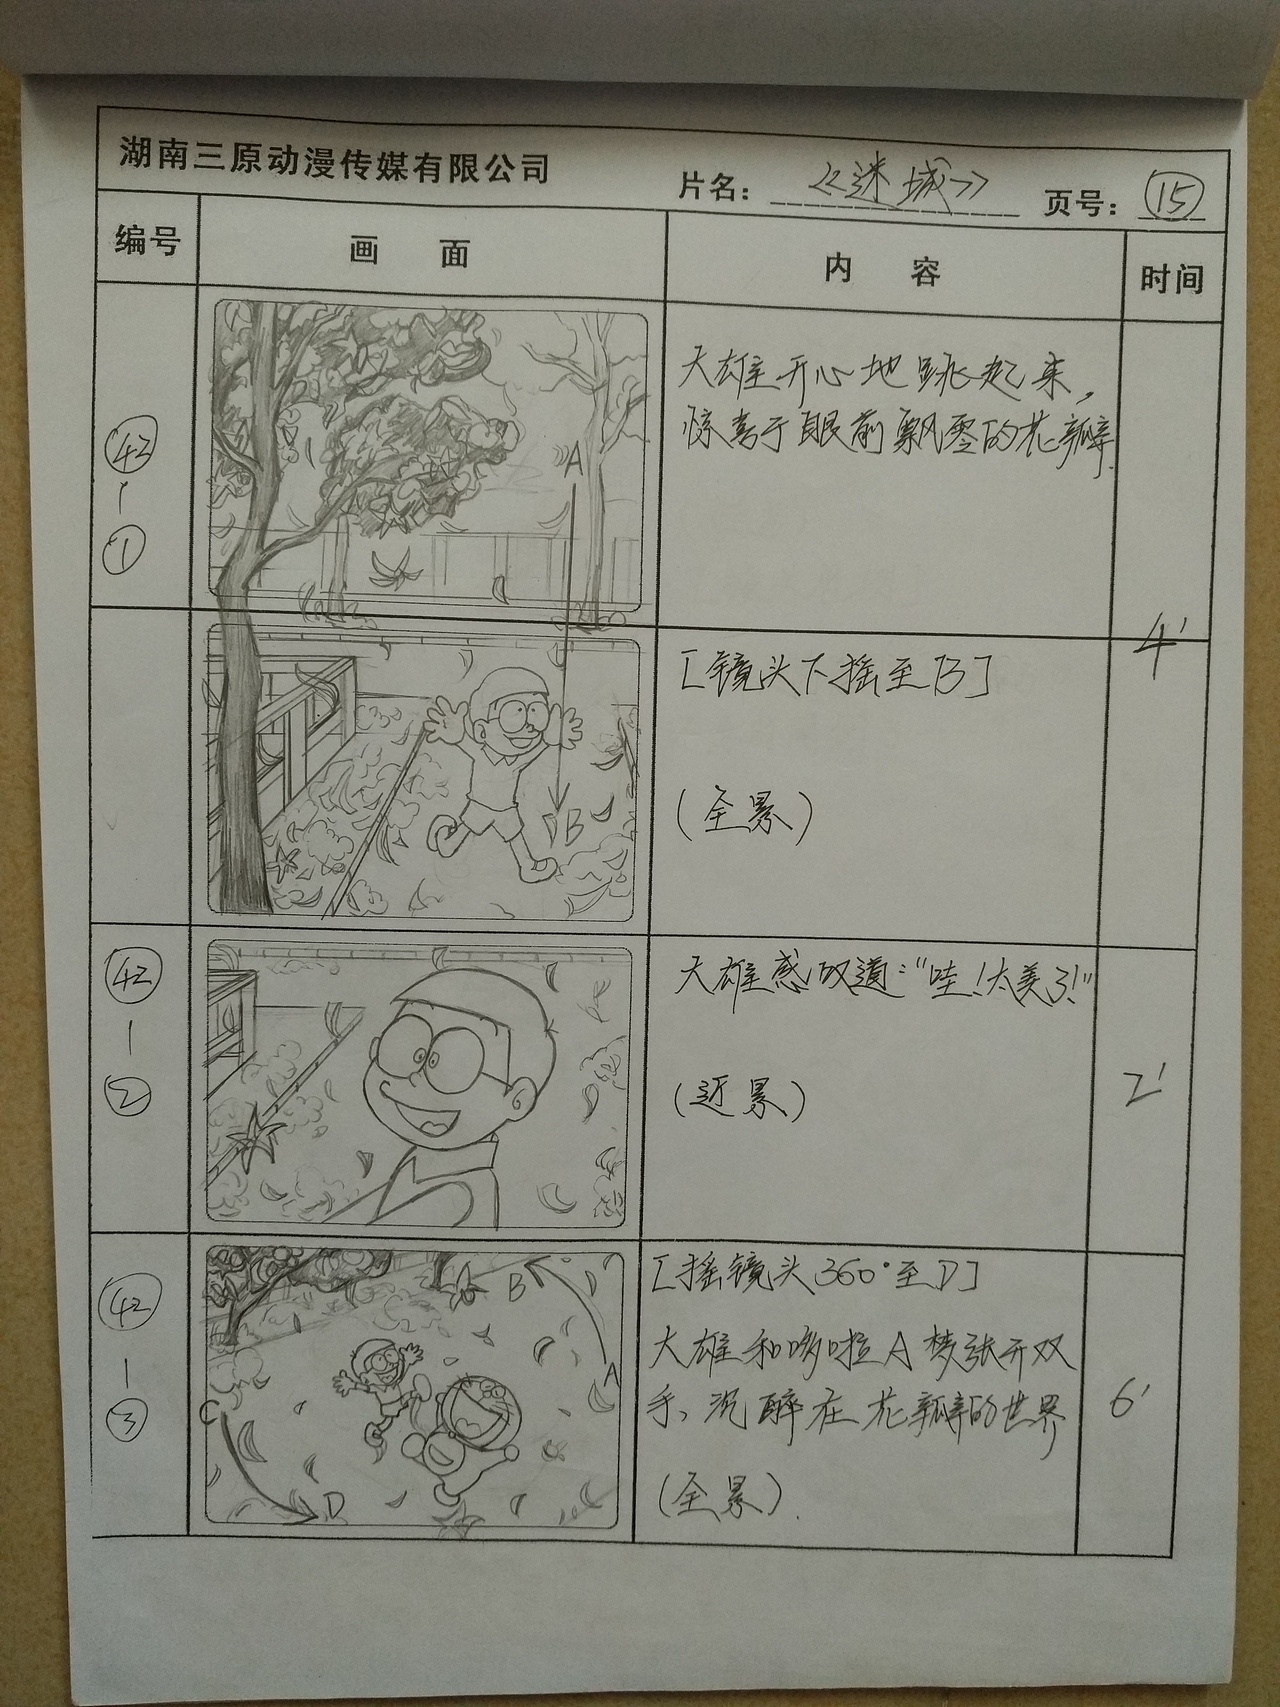 湖南三原动漫传媒有限公司
片名：《迷城》
页号：⑮
编号
画面
内容
时间
㊷
|
①
A
大雄开心地跳起来，
惊喜于眼前飘零的花瓣.
4'
B
[镜头下摇至B]
(全景)
㊷
|
②
大雄感叹道："哇！太美了！"
(近景)
2'
㊷
|
③
B
A
C
D
[摇镜头360°至D]
大雄和哆啦A梦张开双
手、沉醉在花瓣的世界
(全景).
6'